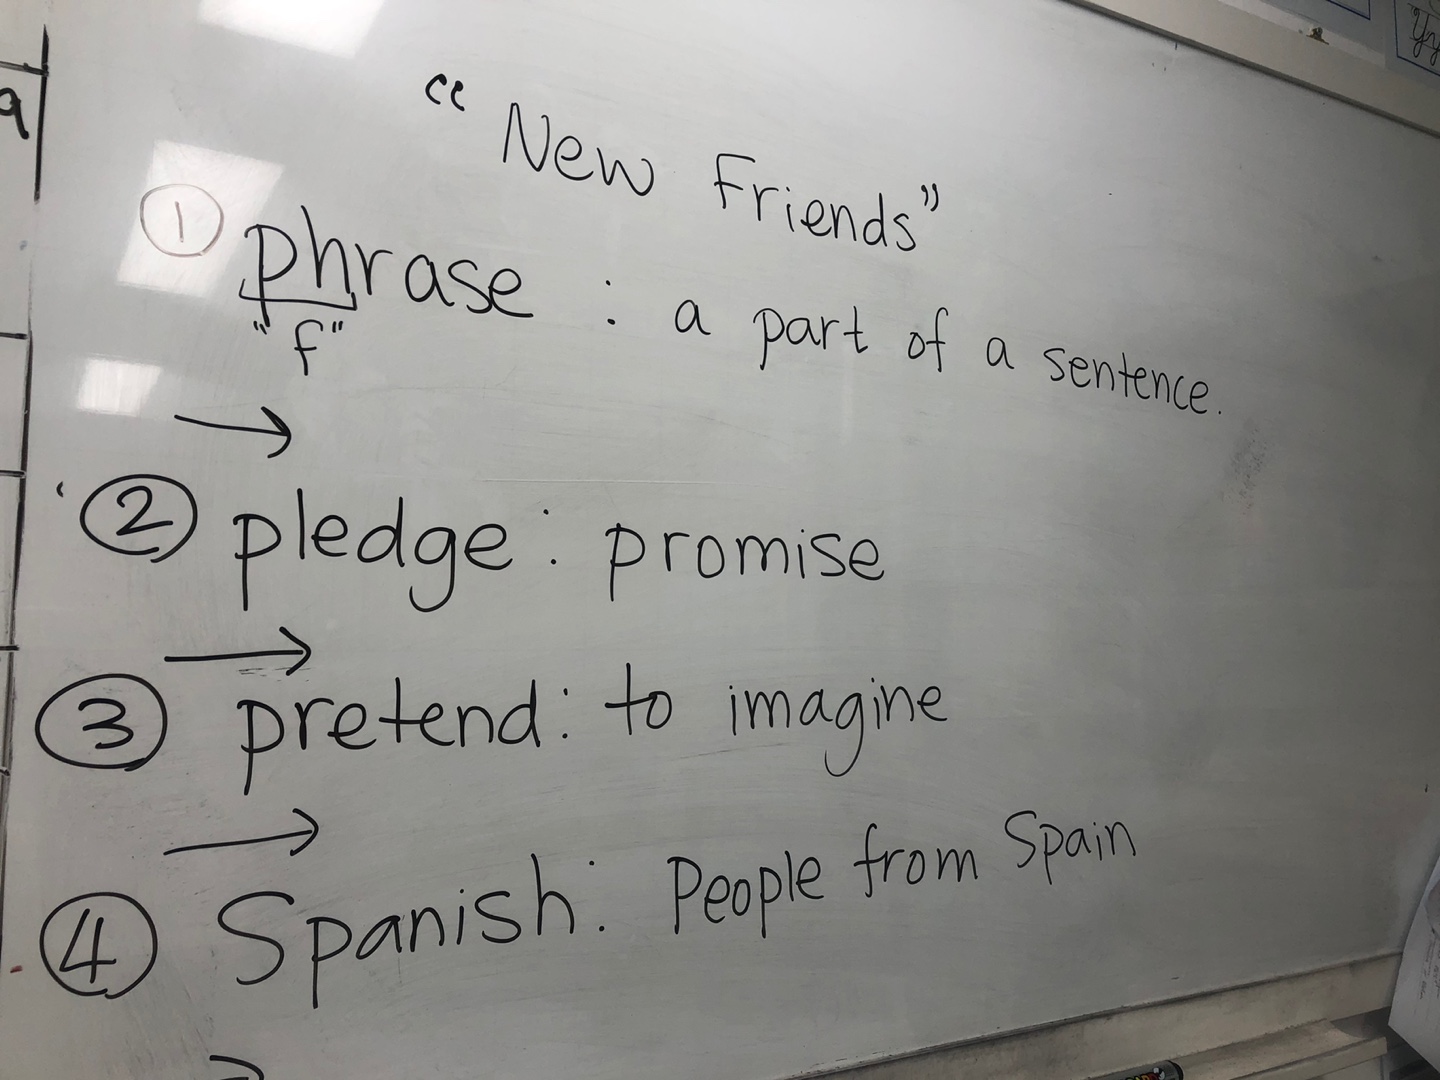 “New Friends”
① phrase : a part of a sentence.
"f"
→
② pledge : promise
→
③ pretend : to imagine
→
④ Spanish : People from Spain
a
Yy